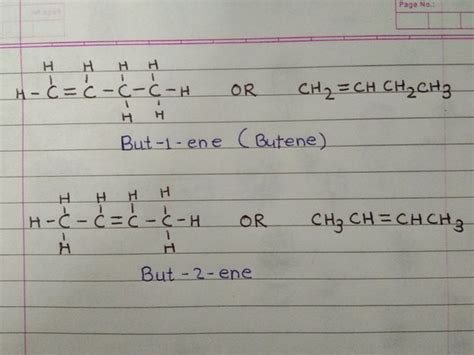 Page No.:
H H H H
H - C = C - C - C - H OR CH₂=CH CH₂CH₃
H H
But-1-ene (Butene)
H H H H
H - C - C = C - C - H OR CH₃ CH=CHCH₃
H H
But-2-ene